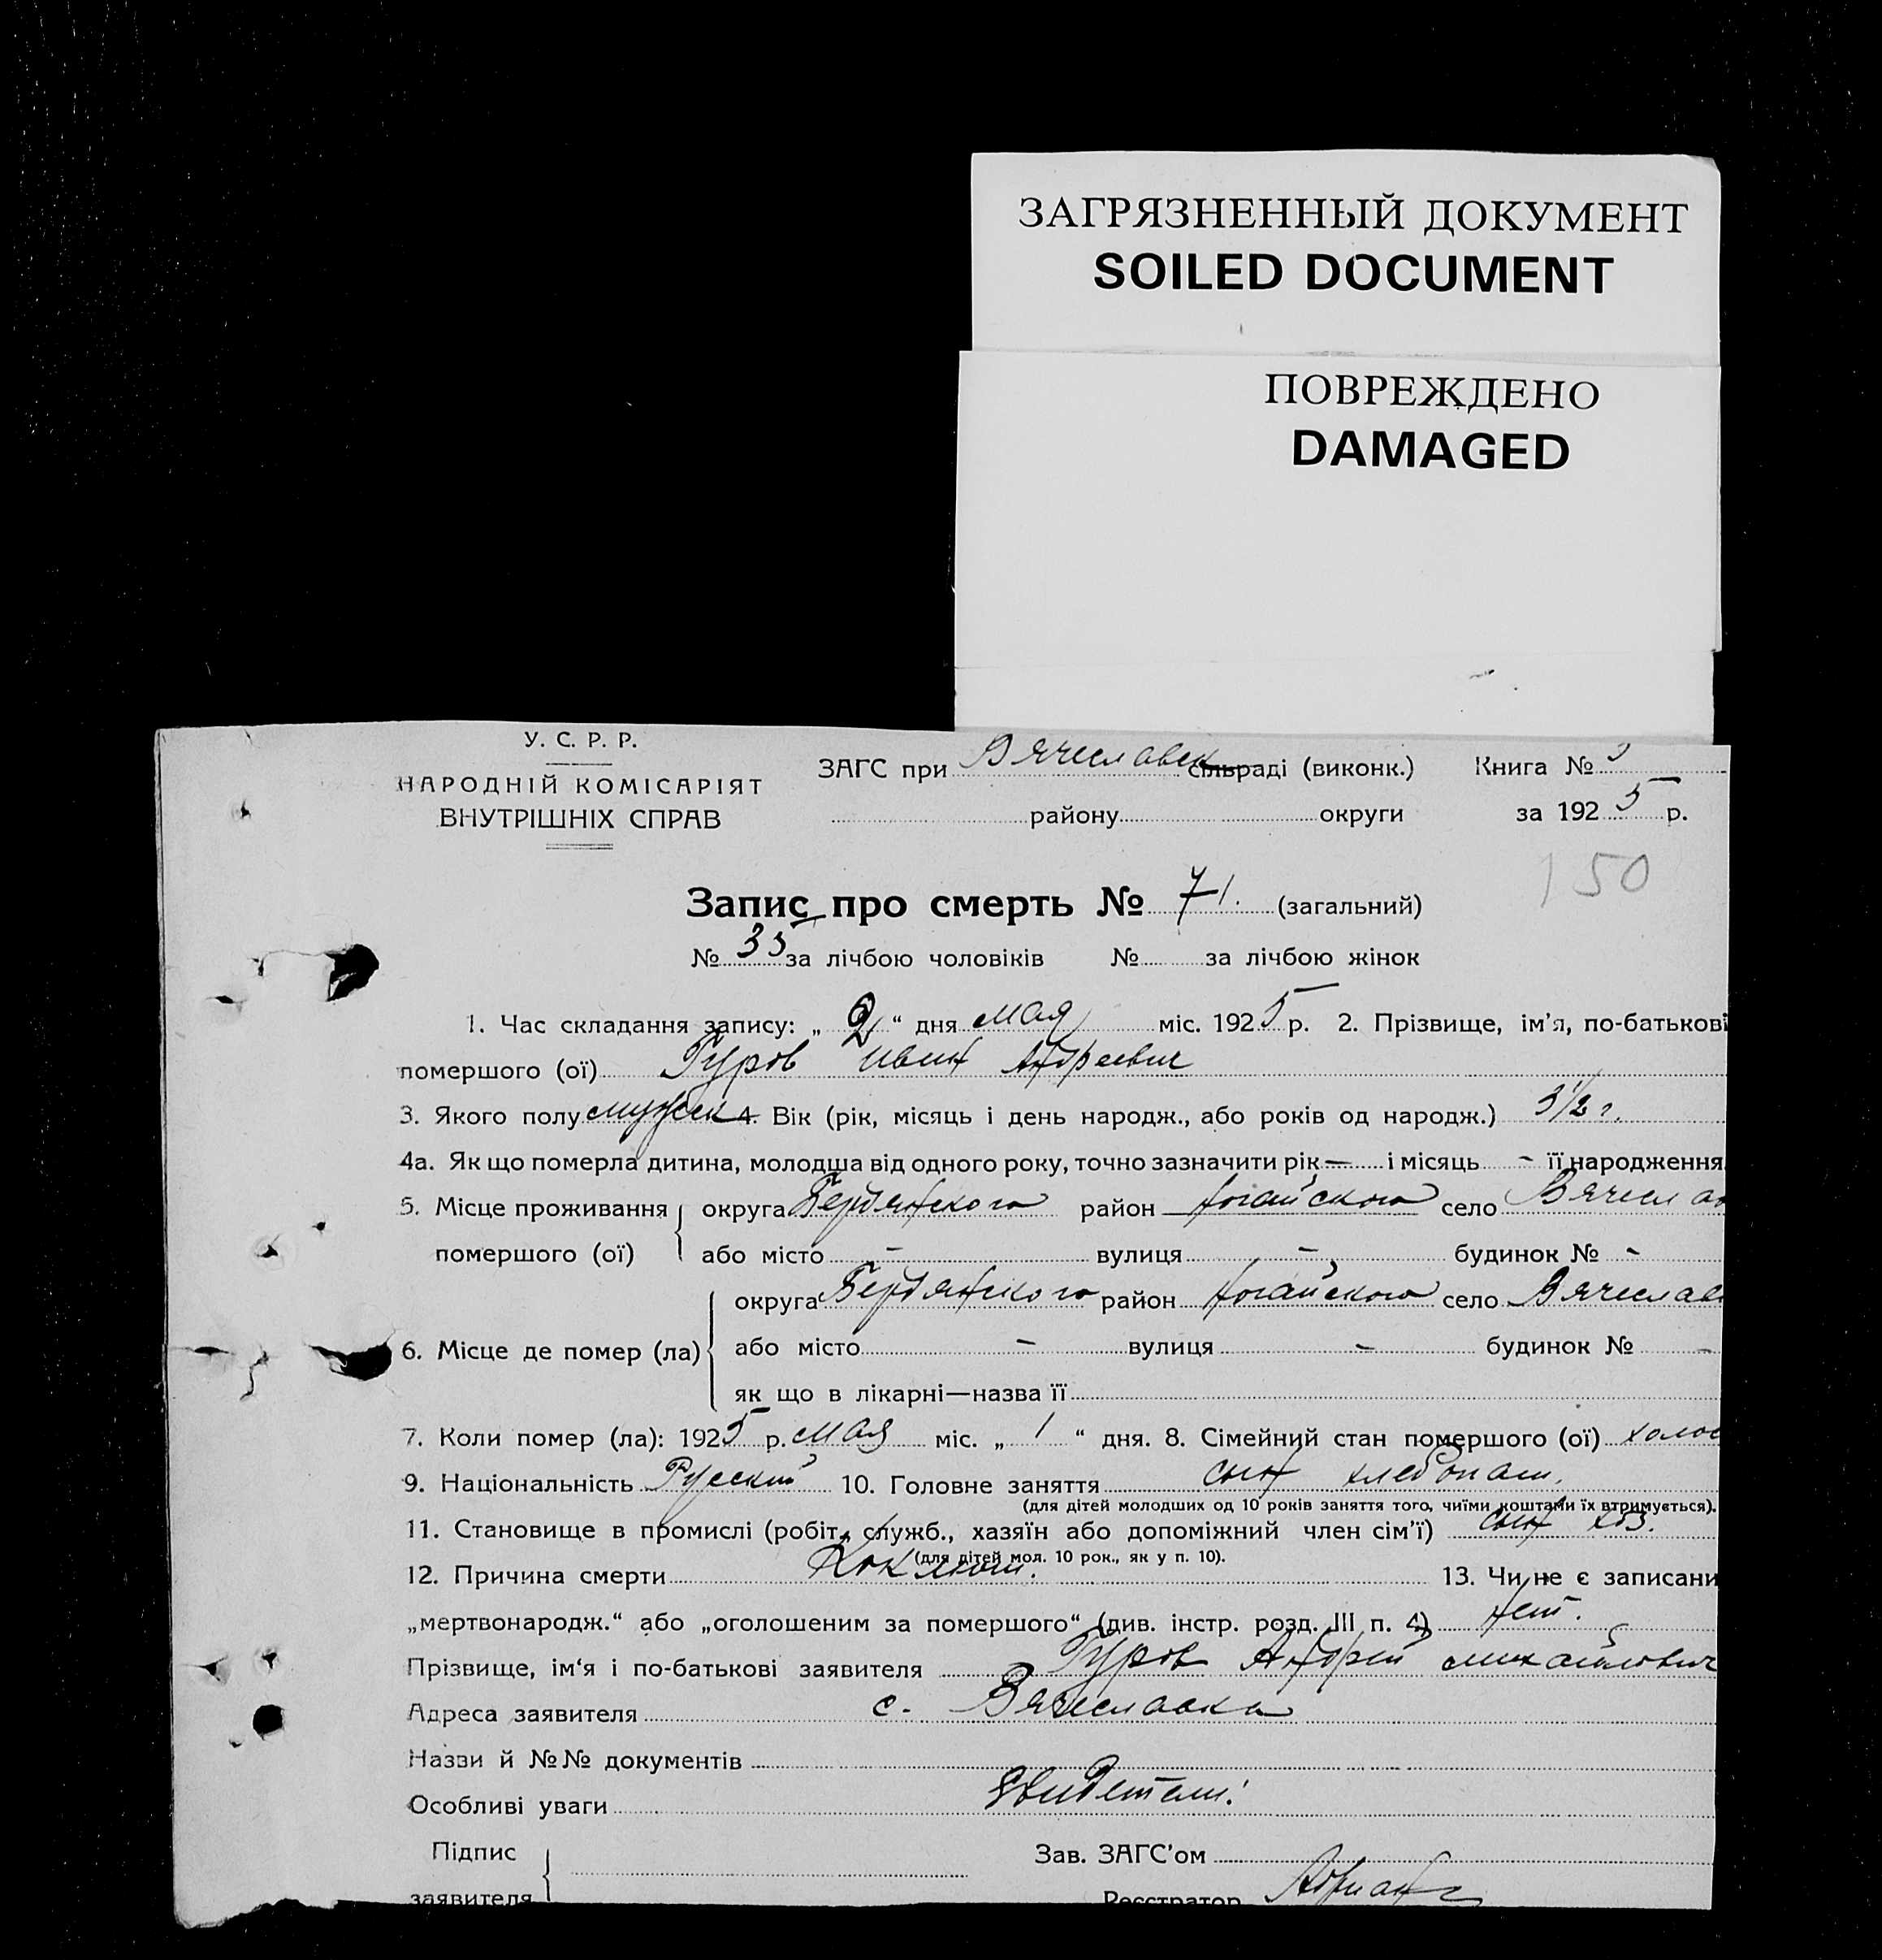 ЗАГРЯЗНЕННЫЙ ДОКУМЕНТ
SOILED DOCUMENT
ПОВРЕЖДЕНО
DAMAGED
У. С. Р. Р.
НАРОДНІЙ КОМІСАРІЯТ
ВНУТРІШНІХ СПРАВ
ЗАГС при Вячеславск сільраді (виконк.) Книга №
району округи за 1925 р.
150
Запис про смерть № 71. (загальний)
№ 33 за лічбою чоловіків № за лічбою жінок
1. Час складання запису: „ 2 “ дня мая міс. 1925 р. 2. Прізвище, ім’я, по-батькові
помершого (ої) Гуров Иван Андреевич
3. Якого полу мужск 4. Вік (рік, місяць і день народж., або років од народж.) 3½ г.
4а. Як що померла дитина, молодша від одного року, точно зазначити рік — і місяць - її народження
5. Місце проживання округа Бердянского район Ногайского село Вячеслав
помершого (ої) або місто - вулиця - будинок № -
округа Бердянского район Ногайского село Вячеслав
6. Місце де помер (ла) або місто - вулиця - будинок № -
як що в лікарні—назва її
7. Коли помер (ла): 1925 р. мая міс. „ 1 “ дня. 8. Сімейний стан помершого (ої) холос
9. Національність Русский 10. Головне заняття сын хлебопаш.
(для дітей молодших од 10 років заняття того, чиїми коштами їх втримується).
11. Становище в промислі (робіт., служб., хазяїн або допоміжний член сім’ї) сын хоз.
(для дітей мол. 10 рок., як у п. 10).
12. Причина смерти Коклюш. 13. Чи не є записани
„мертвонародж.“ або „оголошеним за помершого“ (див. інстр. розд. III п. 4) нет.
Прізвище, ім‘я і по-батькові заявителя Гуров Андрей михайлович
Адреса заявителя с. Вячеславка
Назви й №№ документів
Особливі уваги Свидетели:
Підпис
заявителя
Зав. ЗАГС’ом
Реєстратор